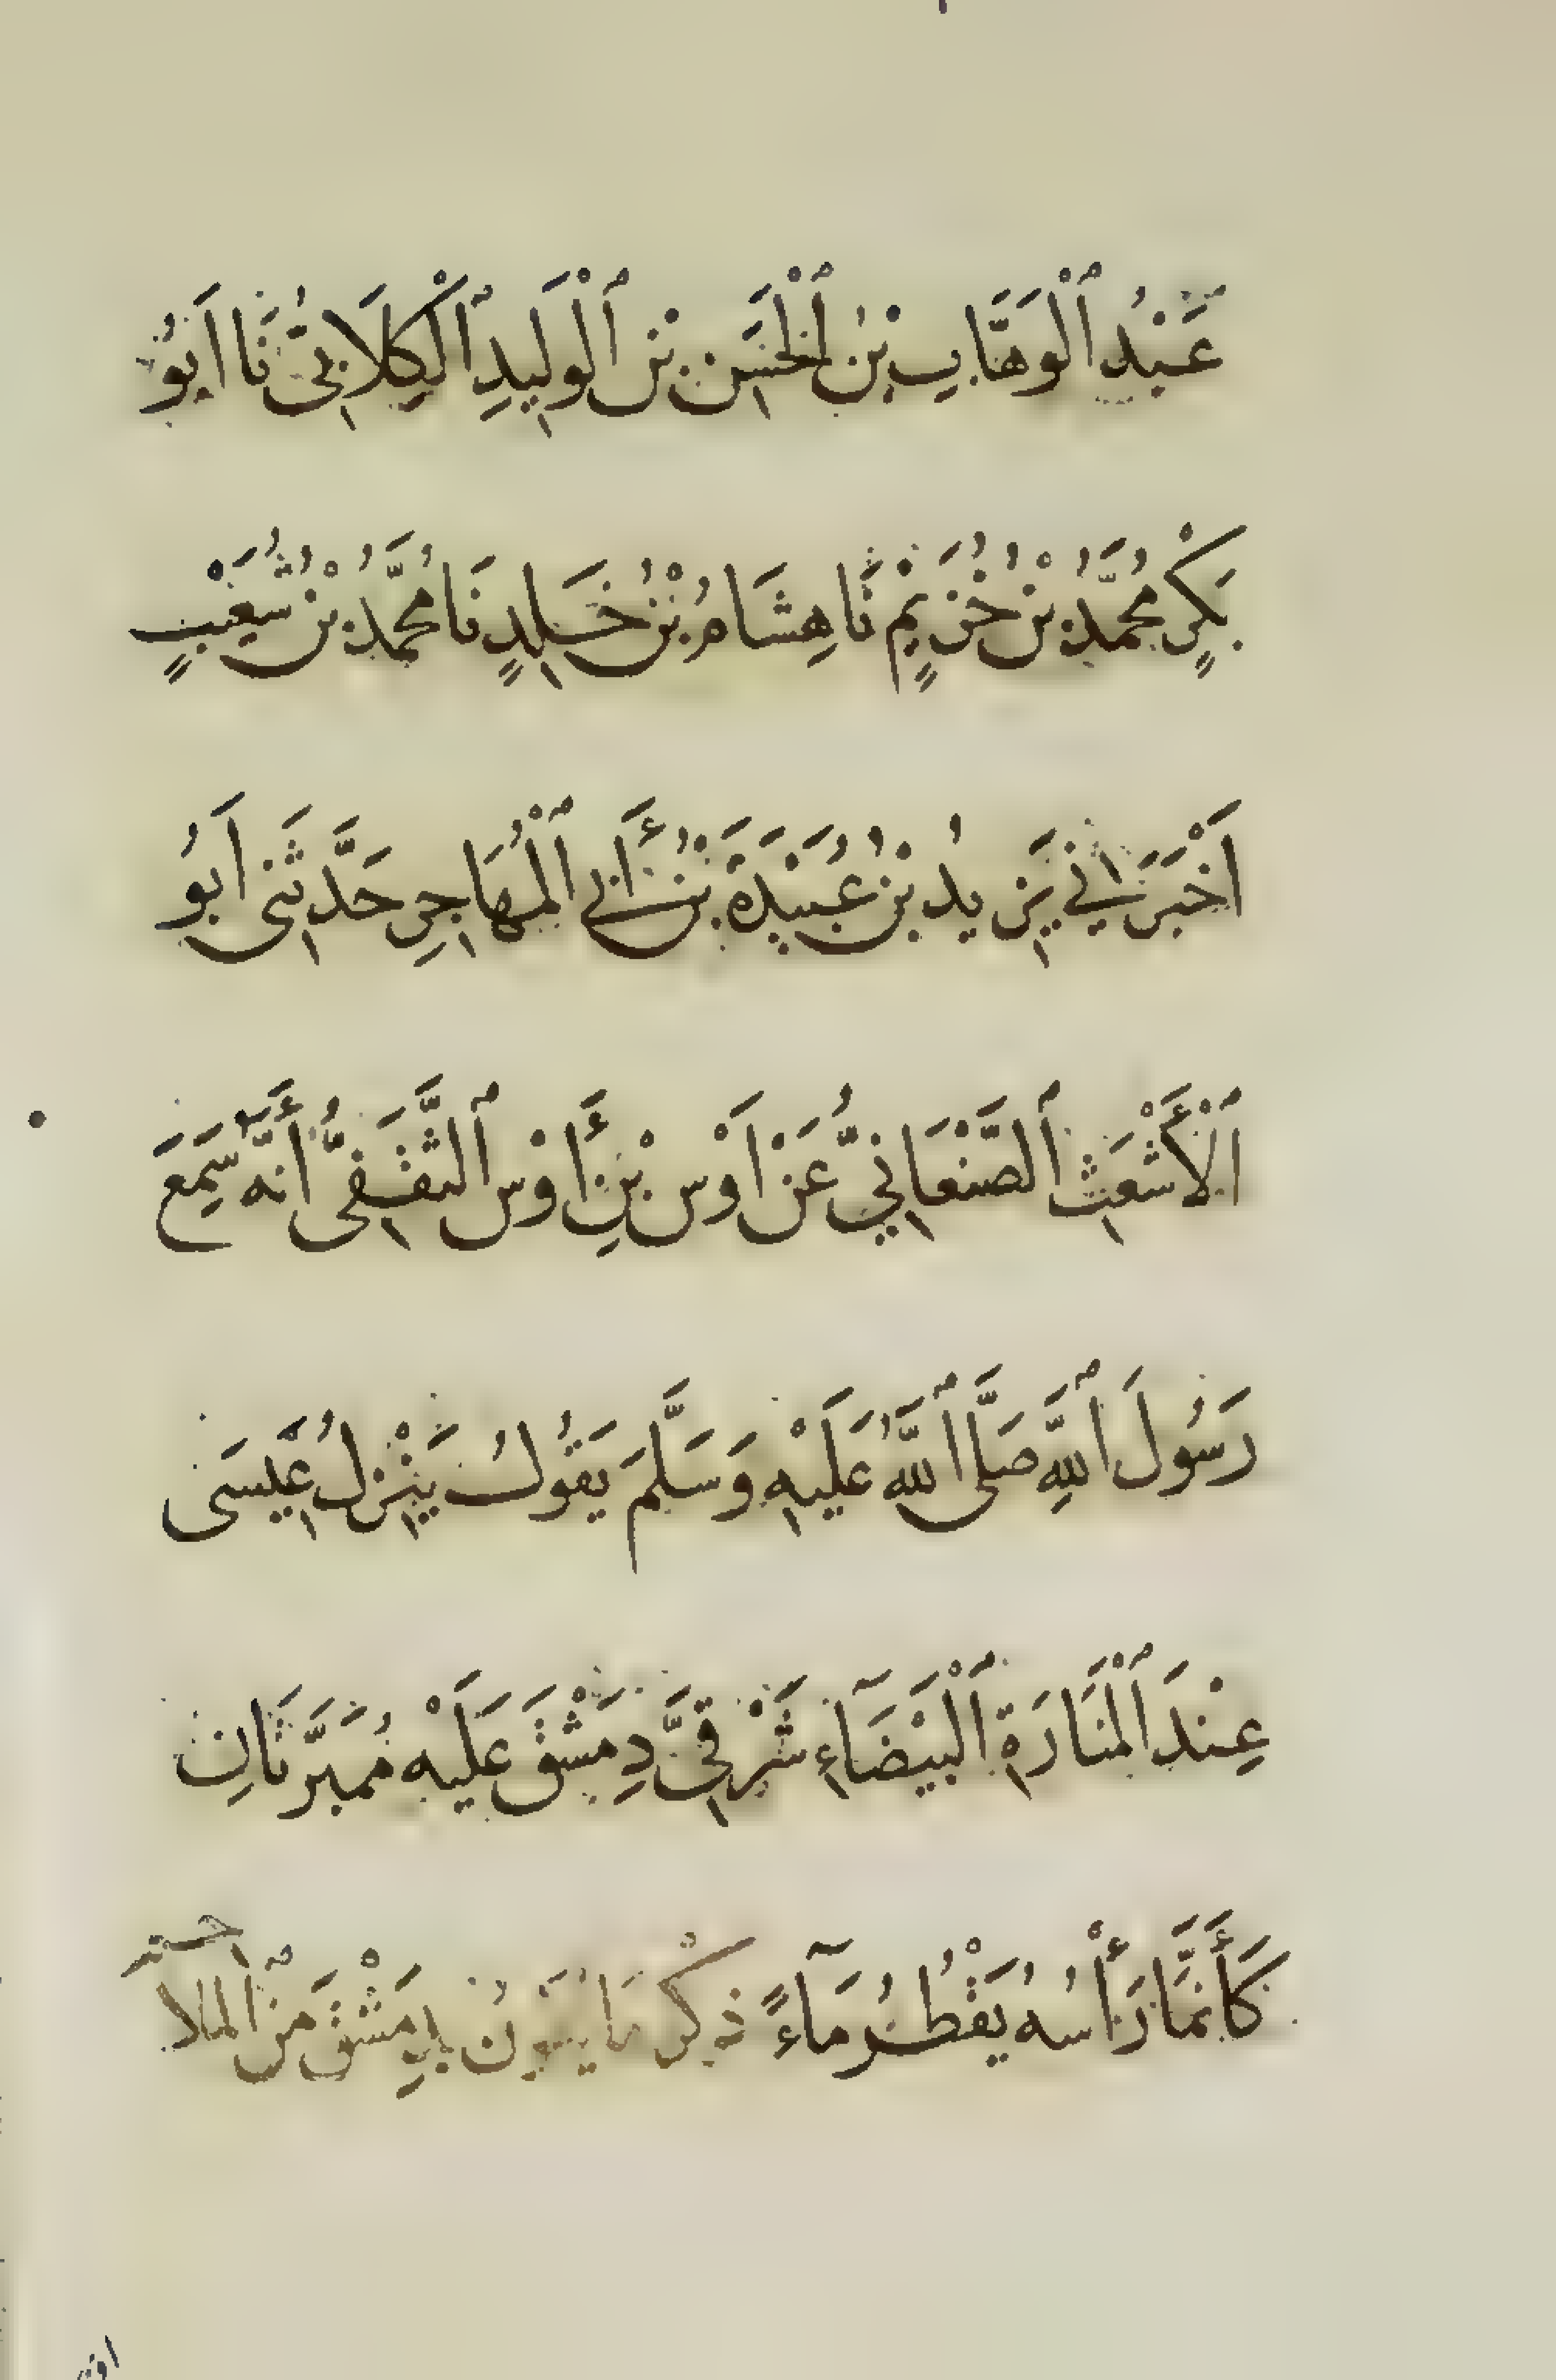 عَبْدُ ٱلْوَهَّابِ بْنُ ٱلْحَسَنِ بْنِ ٱلْوَلِيدِ ٱلْكِلَابِىُّ نَا اَبُو
بَكْرٍ مُحَمَّدُ بْنُ خُزَيْمٍ نَا هِشَامُ بْنُ خَالِدٍ نَا مُحَمَّدُ بْنُ شُعَيْبٍ
اَخْبَرَنِي يَزِيدُ بْنُ عُبَيْدَةَ بْنِ أَبِي ٱلْمُهَاجِرِ حَدَّثَنِى اَبُو
ٱلْأَشْعَثِ ٱلصَّنْعَانِيُّ عَنْ اَوْسِ بْنِ أَوْسٍ ٱلثَّقَفِىُّ أَنَّهُ سَمِعَ
رَسُولَ ٱللَّهِ صَلَّى ٱللَّهُ عَلَيْهِ وَسَلَّمَ يَقُولُ يَنْزِلُ عِيسَى
عِنْدَ ٱلْمَنَارَةِ ٱلْبَيْضَآءِ شَرْقِىَّ دِمَشْقَ عَلَيْهِ مُمَصَّرَتَانِ
كَأَنَّمَا رَأْسُهُ يَقْطُرُ مَآءً ذِكْرُ مَا يَكُونُ بِدِمَشْقَ مِنَ ٱلْمَلَاحِمِ